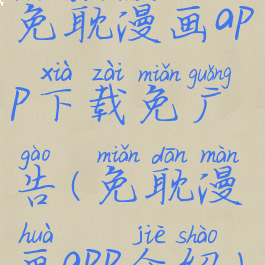 免耽漫画ap
xià zài miǎn guǎng
p下载免广
gào miǎn dān màn
告(免耽漫
huà jiè shào
画app介绍)